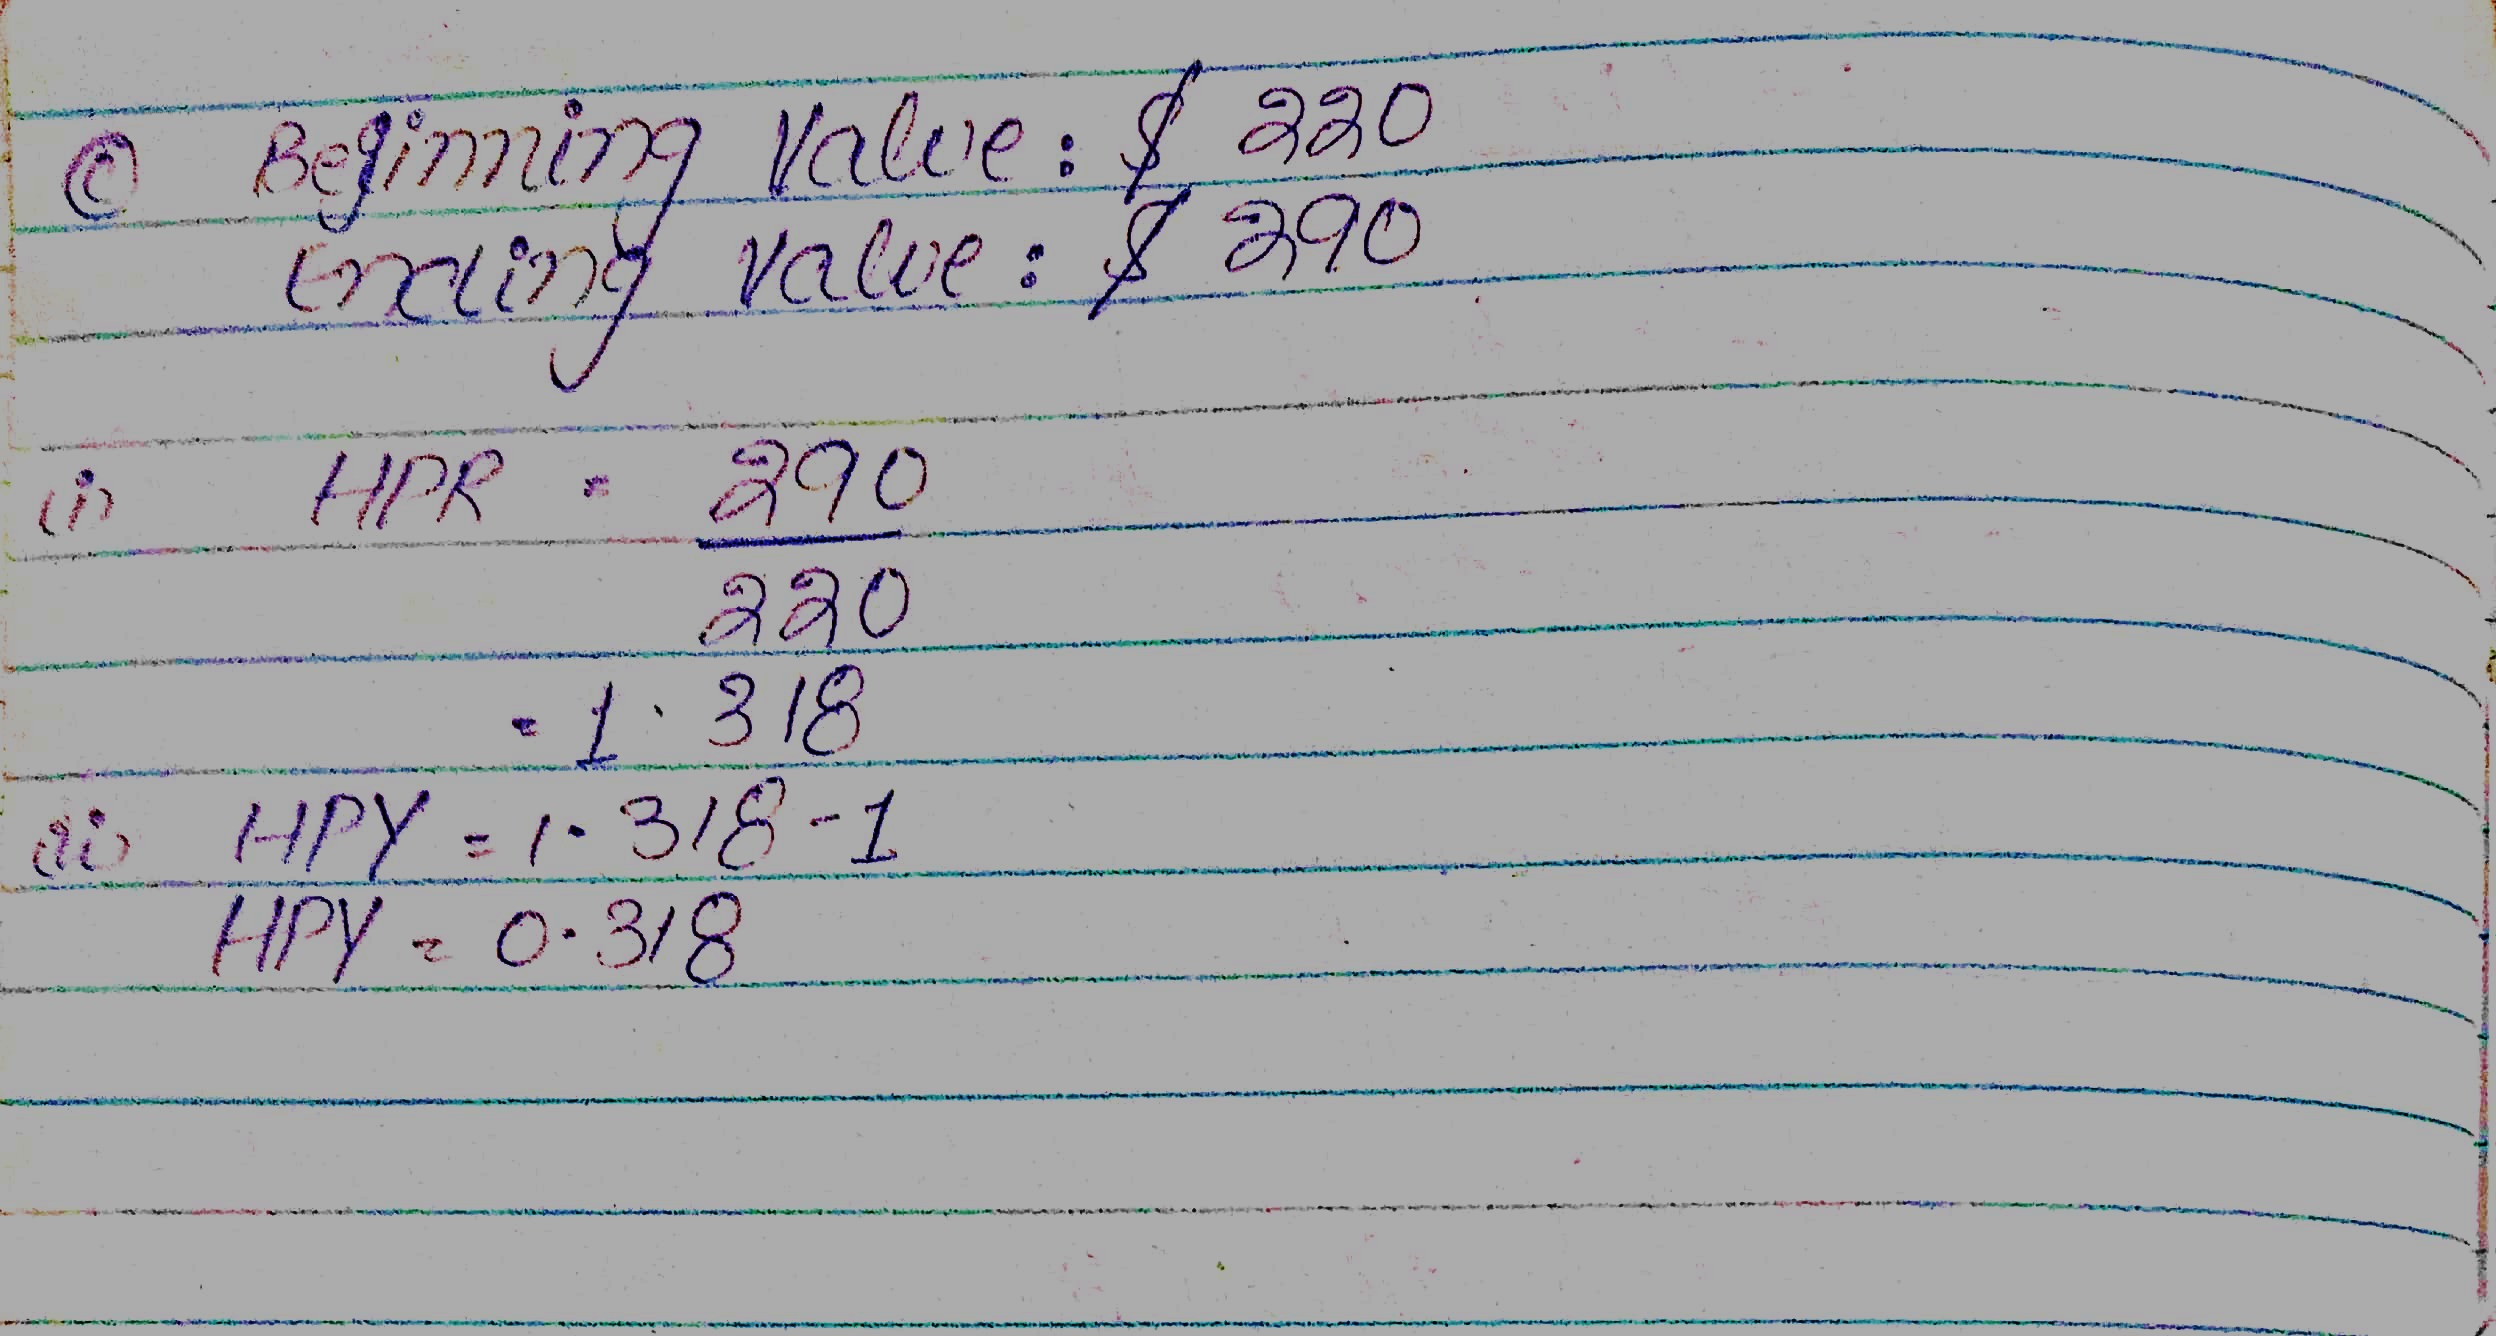 (c) Beginning Value: $ 220
Ending Value: $ 290
(i) HPR = 290
220
= 1.318
(ii) HPY = 1.318 - 1
HPY = 0.318